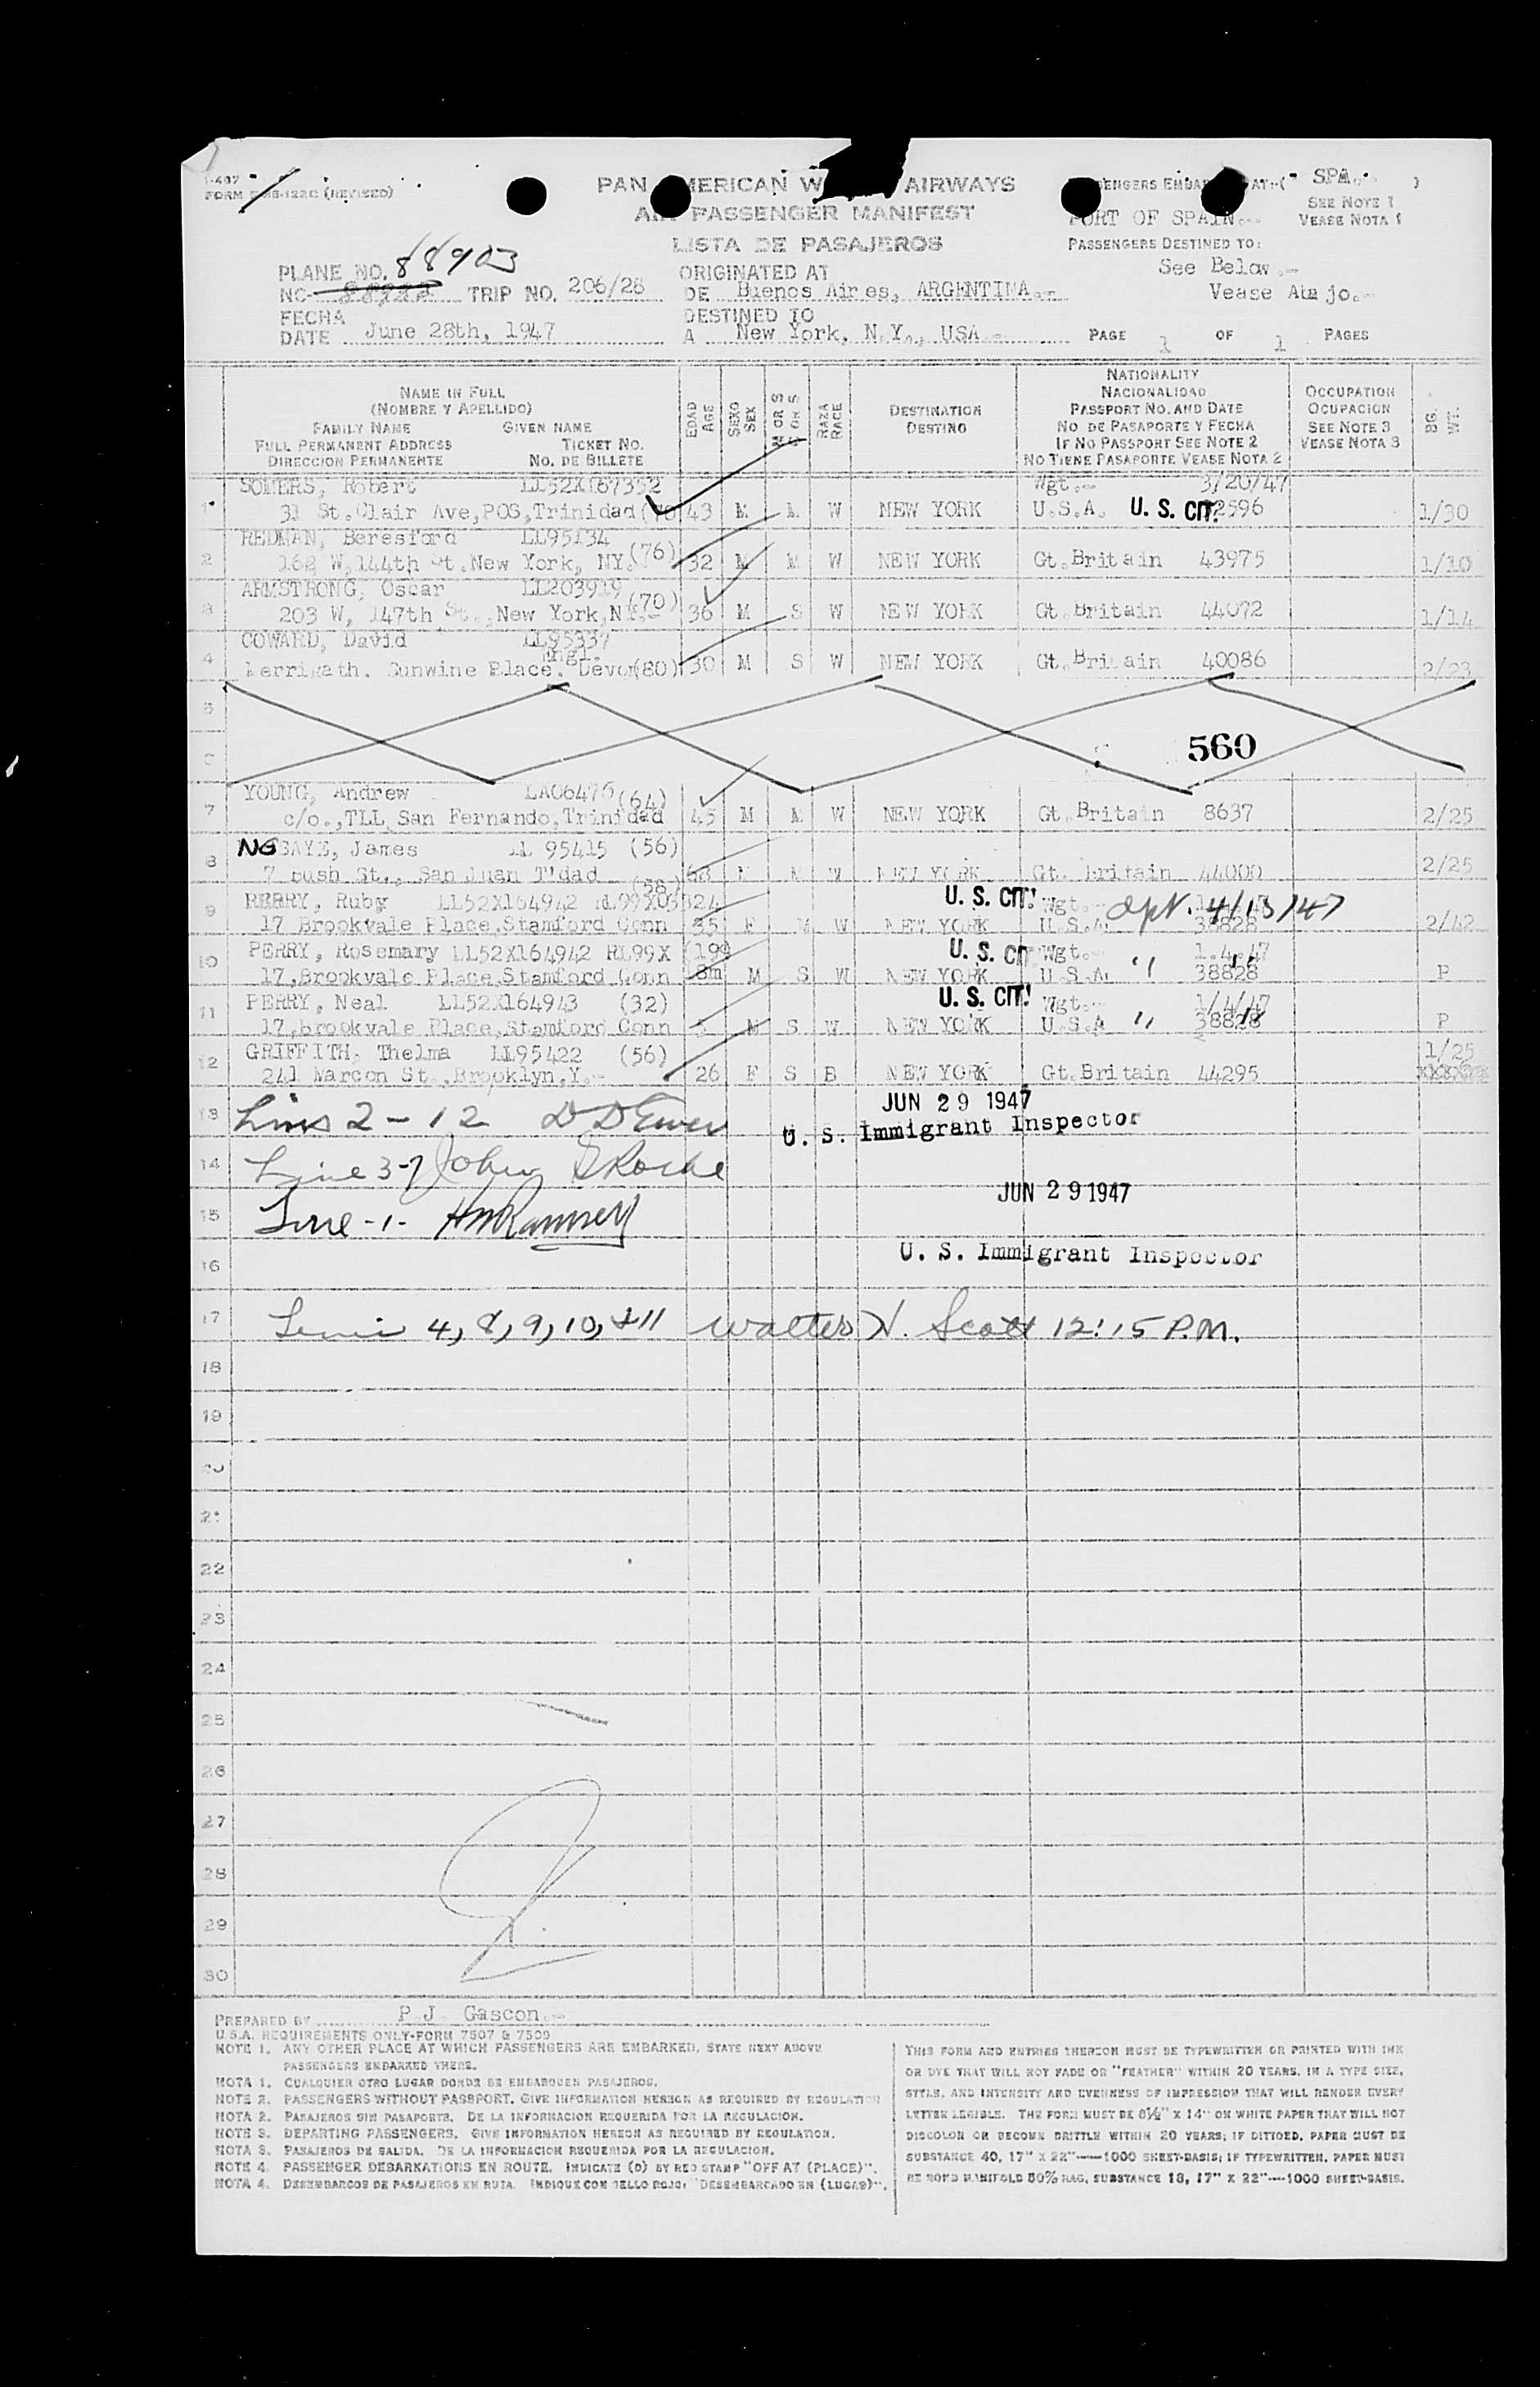 FORM (REVISED)
PAN AMERICAN AIRWAYS
AIR PASSENGER MANIFEST
LISTA DE PASAJEROS
SPA.-
)
SEE NOTE 1
VEASE NOTA 1
PORT OF SPAIN.--
PASSENGERS DESTINED TO:
See Below.-
Vease Abajo.-
PLANE NO. 88903
NC- TRIP NO. 206/28
FECHA
DATE June 28th, 1947
ORIGINATED AT
DE Buenos Aires, ARGENTINA.-
DESTINED TO
A New York, N.Y., USA.-
PAGE 1 OF 1 PAGES
NAME IN FULL
(NOMBRE Y APELLIDO)
FAMILY NAME GIVEN NAME
FULL PERMANENT ADDRESS TICKET NO.
DIRECCION PERMANENTE NO. DE BILLETE
EDAD AGE
SEXO SEX
M OR S
RAZA RACE
DESTINATION
DESTINO
NATIONALITY
NACIONALIDAD
PASSPORT NO. AND DATE
NO DE PASAPORTE Y FECHA
IF NO PASSPORT SEE NOTE 2
NO TIENE PASAPORTE VEASE NOTA 2
OCCUPATION
OCUPACION
SEE NOTE 3
VEASE NOTA 3
BG. WT.
SOMERS, Robert LL52X167352 Wgt.- 3/20/47
1 31 St.Clair Ave,POS,Trinidad 43 M M W NEW YORK U.S.A. U. S. CIT. 2596 1/30
REDMAN, Beresford LL95134
2 162 W,144th St.New York, NY. (76) 32 M M W NEW YORK Gt.Britain 43975 1/10
ARMSTRONG, Oscar LL203919
3 203 W, 147th St.,New York,NY.- (70) 36 M S W NEW YORK Gt.Britain 44072 1/14
COWARD, David LL95337
Engl.
4 Sunwine Place. Devon (80) 30 M S W NEW YORK Gt.Britain 40086 2/23
5
6
560
YOUNG, Andrew LA06476 (64)
7 c/o.,TLL San Fernando,Trinidad 45 M M W NEW YORK Gt.Britain 8637 2/25
James LL 95415 (56)
8 7 Bush St., San Juan T'dad 68 M M W NEW YORK Gt. Britain 44000 2/25
(58)
PERRY, Ruby LL52X164942 U. S. CIT! Wgt.- 4/18/47
9 17 Brookvale Place,Stamford Conn 35 F M W NEW YORK U.S.A. 38828 2/42
PERRY, Rosemary LL52X164942 RL99X (199 U. S. CIT Wgt.- 1.4.47
10 17,Brookvale Place,Stamford Conn 8m M S W NEW YORK U.S.A. " 38828 P
PERRY, Neal LL52X164943 (32) U. S. CIT! Wgt.- 1/4/47
11 17,Brookvale Place,Stamford Conn M S W NEW YORK U.S.A " 38828 P
GRIFFITH, Thelma LL95422 (56) 1/25
12 241 Marcon St.,Brooklyn,Y.- 26 F S B NEW YORK Gt.Britain 44295
JUN 29 1947
13 Lines 2 - 12
U. S. Immigrant Inspector
14 Line 3-7 John Roche
JUN 29 1947
15 Line -1- HM Ramsey
16
U. S. Immigrant Inspector
17 4, 8, 9, 10, & 11 Walter H. Scott 12:15 P.M.
18
19
20
21
22
23
24
25
26
27
28
29
30
PREPARED BY P.J. Gascon.-
U.S.A. REQUIREMENTS ONLY-FORM 7507 & 7509
NOTE 1. ANY OTHER PLACE AT WHICH PASSENGERS ARE EMBARKED, STATE NEXT ABOVE
PASSENGERS EMBARKED THERE.
NOTA 1. CUALQUIER OTRO LUGAR DONDE SE EMBARQUEN PASAJEROS.
NOTE 2. PASSENGERS WITHOUT PASSPORT. GIVE INFORMATION HEREON AS REQUIRED BY REGULATION
NOTA 2. PASAJEROS SIN PASAPORTE. DE LA INFORMACION REQUERIDA POR LA REGULACION.
NOTE 3. DEPARTING PASSENGERS. GIVE INFORMATION HEREON AS REQUIRED BY REGULATION.
NOTA 3. PASAJEROS DE SALIDA. DE LA INFORMACION REQUERIDA POR LA REGULACION.
NOTE 4. PASSENGER DEBARKATIONS EN ROUTE. INDICATE (D) BY RED STAMP "OFF AT (PLACE)".
NOTA 4. DESEMBARCOS DE PASAJEROS EN RUTA. INDIQUE CON SELLO ROJO: "DESEMBARCADO EN (LUGAR)".
THIS FORM AND ENTRIES THEREON MUST BE TYPEWRITTEN OR PRINTED WITH INK
OR DYE THAT WILL NOT FADE OR "FEATHER" WITHIN 20 YEARS, IN A TYPE SIZE,
STYLE, AND INTENSITY AND EVENNESS OF IMPRESSION THAT WILL RENDER EVERY
LETTER LEGIBLE. THE FORM MUST BE 8½" X 14" ON WHITE PAPER THAT WILL NOT
DISCOLOR OR BECOME BRITTLE WITHIN 20 YEARS; IF DITTOED, PAPER MUST BE
SUBSTANCE 40, 17" X 22"—1000 SHEET-BASIS; IF TYPEWRITTEN, PAPER MUST
BE BOND MANIFOLD 50% RAG, SUBSTANCE 18, 17" X 22"—1000 SHEET-BASIS.